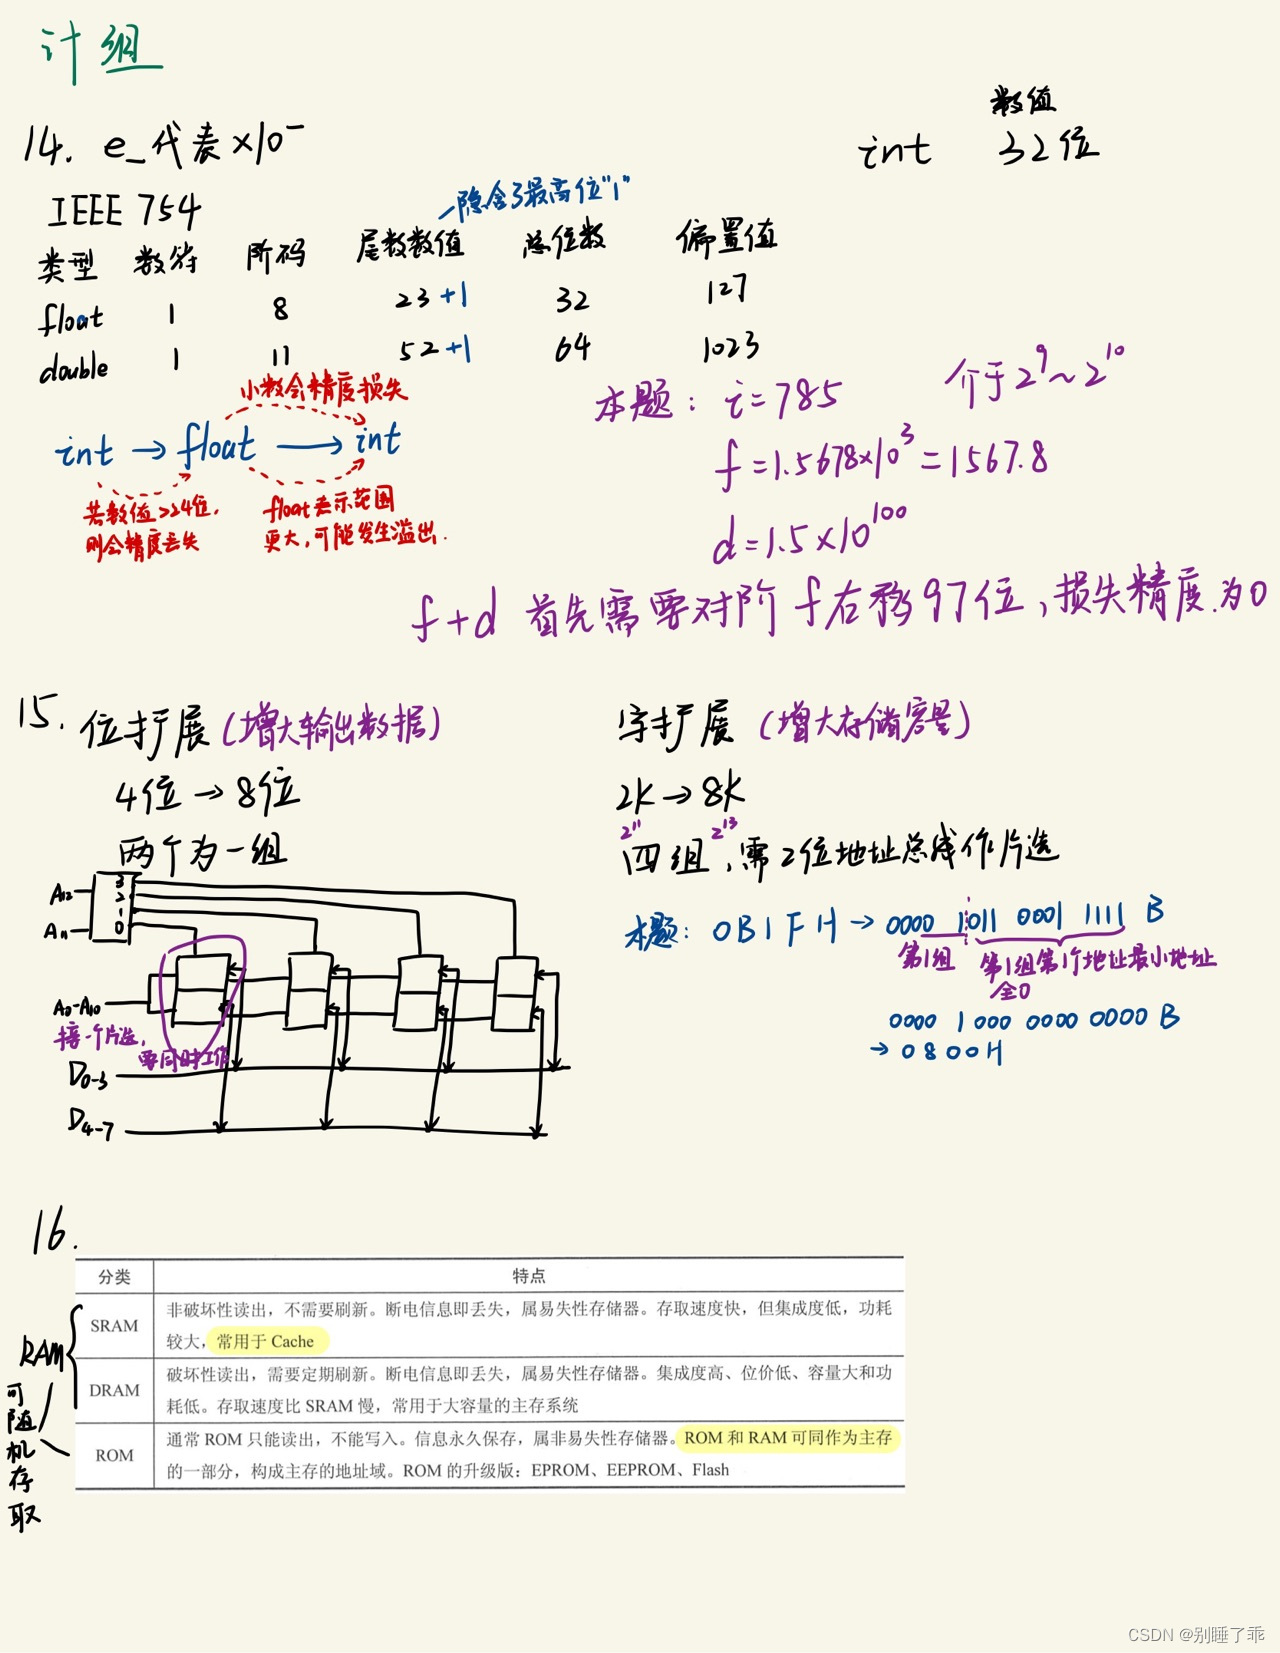 计组
14. e_代表×10⁻
数值
int 32位
IEEE 754
隐含了最高位"1"
类型 数符 阶码 尾数数值 总位数 偏置值
float 1 8 23+1 32 127
double 1 11 52+1 64 1023
小数会精度损失
int → float → int
若数值>24位,
则会精度丢失
float表示范围
更大,可能发生溢出.
本题: i=785 介于2⁹~2¹⁰
f=1.5678×10³=1567.8
d=1.5×10¹⁰⁰
f+d 首先需要对阶 f右移97位,损失精度.为0
15. 位扩展(增大输出数据)
4位→8位
两个为一组
A12
A11
3
2
1
0
A0-A10
接一个片选,
要同时工作
D0-3
D4-7
字扩展(增大存储容量)
2K→8K
2¹¹ 2¹³
四组,需2位地址总线作片选
本题: 0B1FH→0000 1011 0001 1111 B
第1组 第1组第1个地址最小地址
全0
0000 1000 0000 0000 B
→0800H
16.
RAM
可随机存取
分类 特点
SRAM 非破坏性读出，不需要刷新。断电信息即丢失，属易失性存储器。存取速度快，但集成度低，功耗
较大，常用于 Cache
DRAM 破坏性读出，需要定期刷新。断电信息即丢失，属易失性存储器。集成度高、位价低、容量大和功
耗低。存取速度比 SRAM 慢，常用于大容量的主存系统
ROM 通常 ROM 只能读出，不能写入。信息永久保存，属非易失性存储器。ROM 和 RAM 可同作为主存
的一部分，构成主存的地址域。ROM 的升级版：EPROM、EEPROM、Flash
CSDN @别睡了乖